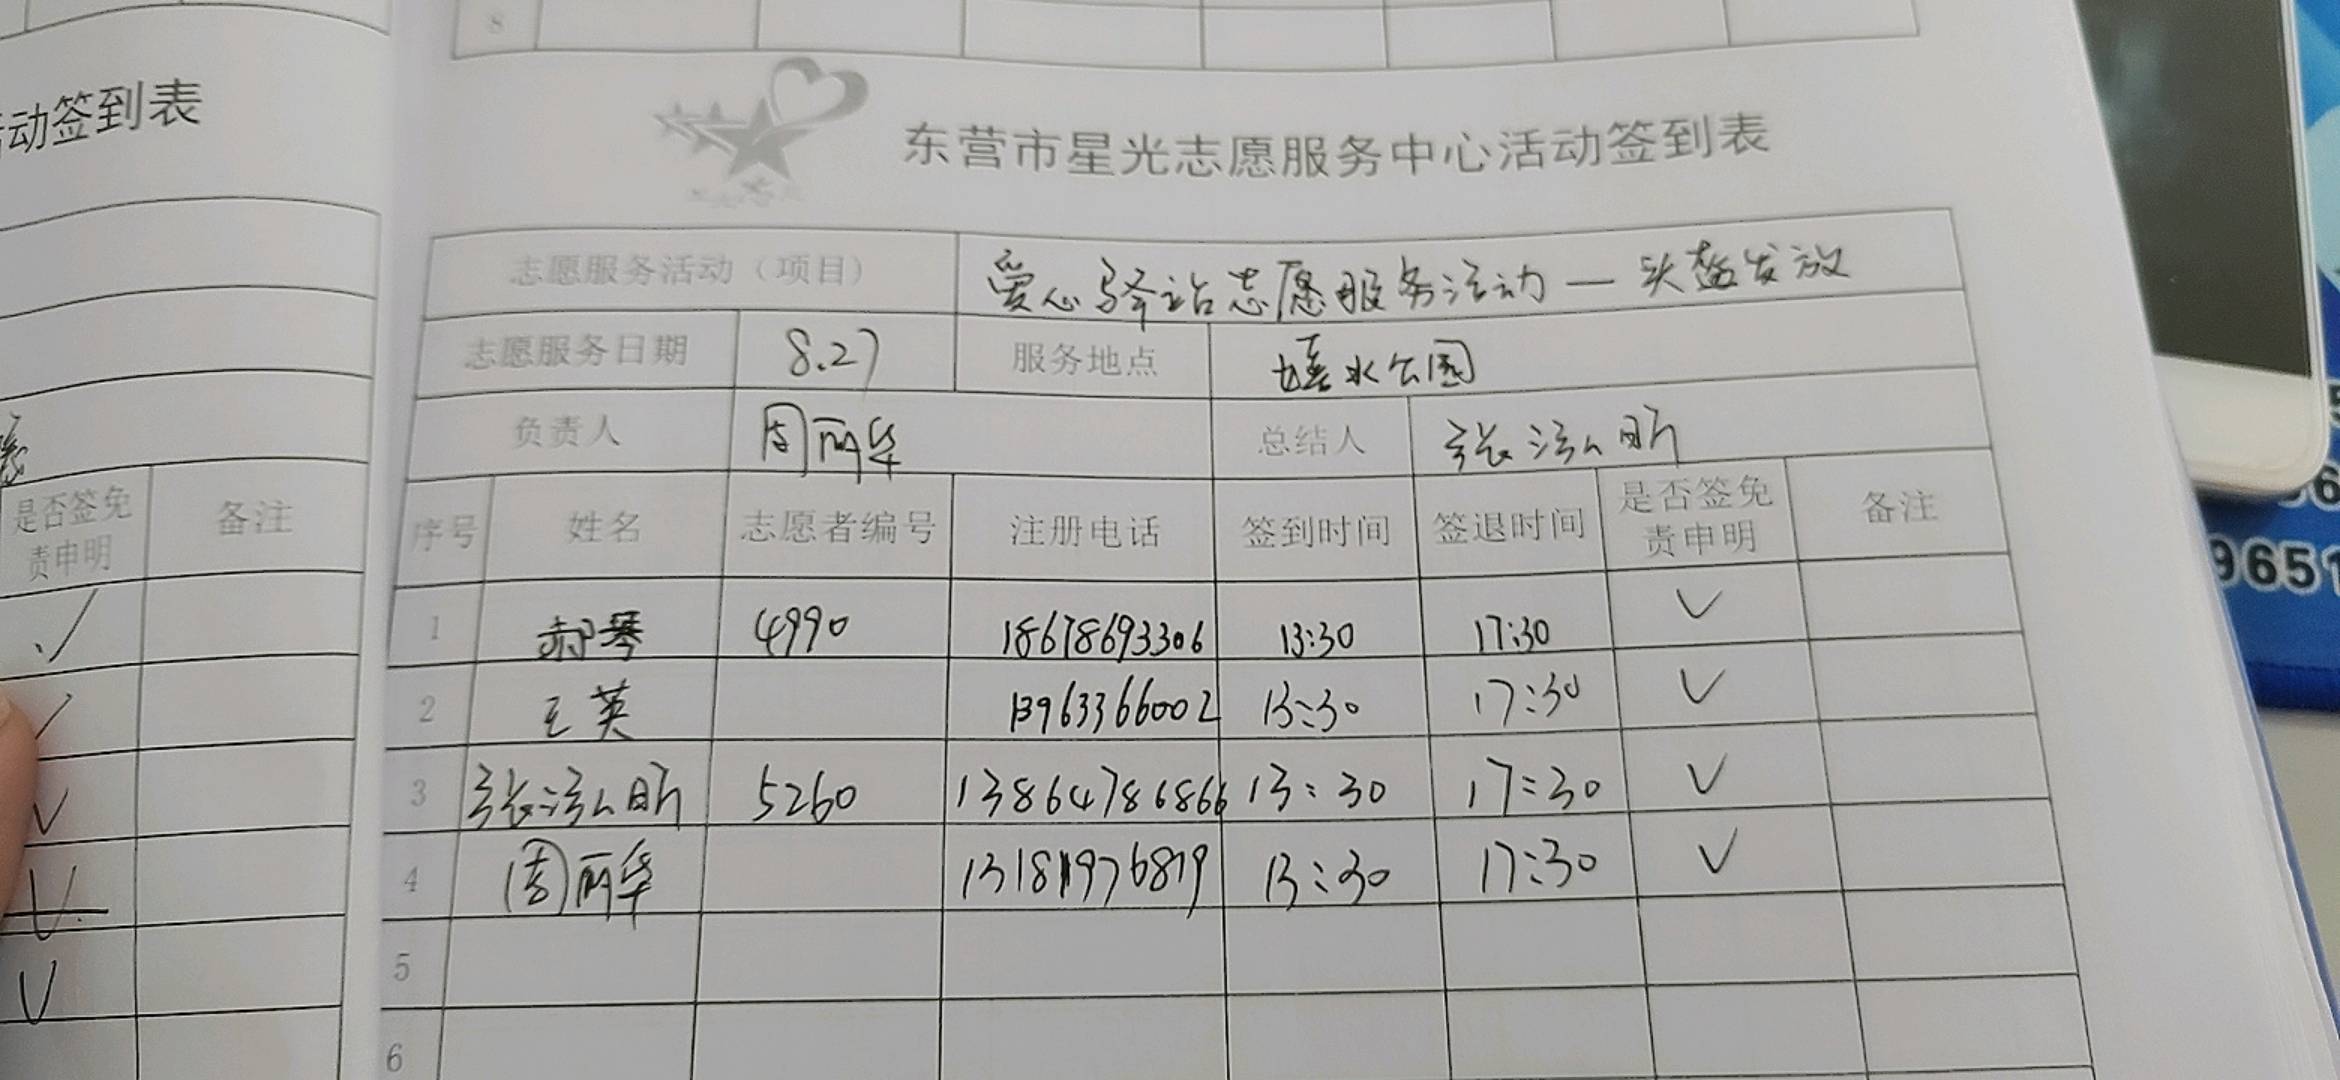 8
动签到表
东营市星光志愿服务中心活动签到表
志愿服务活动（项目） 爱心驿站志愿服务活动—头盔发放
志愿服务日期 8.27 服务地点 水公园
负责人 周丽华 总结人 张泓昕
是否签免责申明 备注
序号 姓名 志愿者编号 注册电话 签到时间 签退时间 是否签免责申明 备注
1 郝琴 4990 18678693306 13:30 17:30 ✓
2 王英 13963366002 13:30 17:30 ✓
3 张泓昕 5260 13864786866 13:30 17:30 ✓
4 周丽华 13181976819 13:30 17:30 ✓
5
6
9651